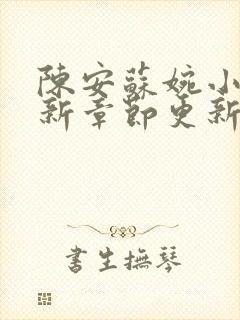 陳安蘇婉小
新章節更新
書生撫琴